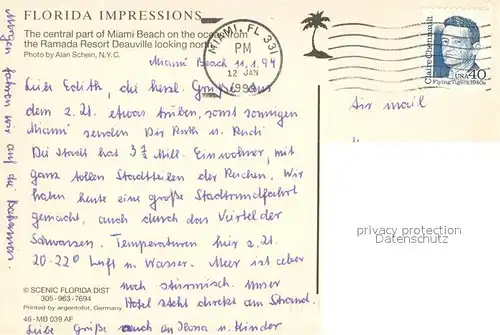 FLORIDA IMPRESSIONS
The central part of Miami Beach on the ocean from
the Ramada Resort Deauville looking north
Photo by Alan Schein, N.Y.C.
MIAMI, FL 331
PM
12 JAN
1994
Claire Chennault
Flying Tigers, 1940s
USA 40
Miami Beach 11.1.94
Liebe Edith, die herzl. Grüße aus
dem z. Zt. etwas trüben, sonst sonnigen
Miami senden Dir Ruth u. Rudi
Die Stadt hat 3 3/4 Mill. Einwohner, mit
ganz tollen Stadtteilen der Reichen. Wir
haben heute eine große Stadtrundfahrt
gemacht, auch durch das Viertel der
Schwarzen. Temperaturen hier z. Zt.
20-22° Luft u. Wasser. Meer ist aber
noch stürmisch. Unser
Hotel steht direkt am Strand.
Liebe Grüße auch an Ilona u. Kinder
Morgen fahren wir auf die Bahamas.
Air mail
PROVIDED BY
Datenschutz
© SCENIC FLORIDA DIST
305-963-7694
Printed by argentofor, Germany
46-MB 039 AF